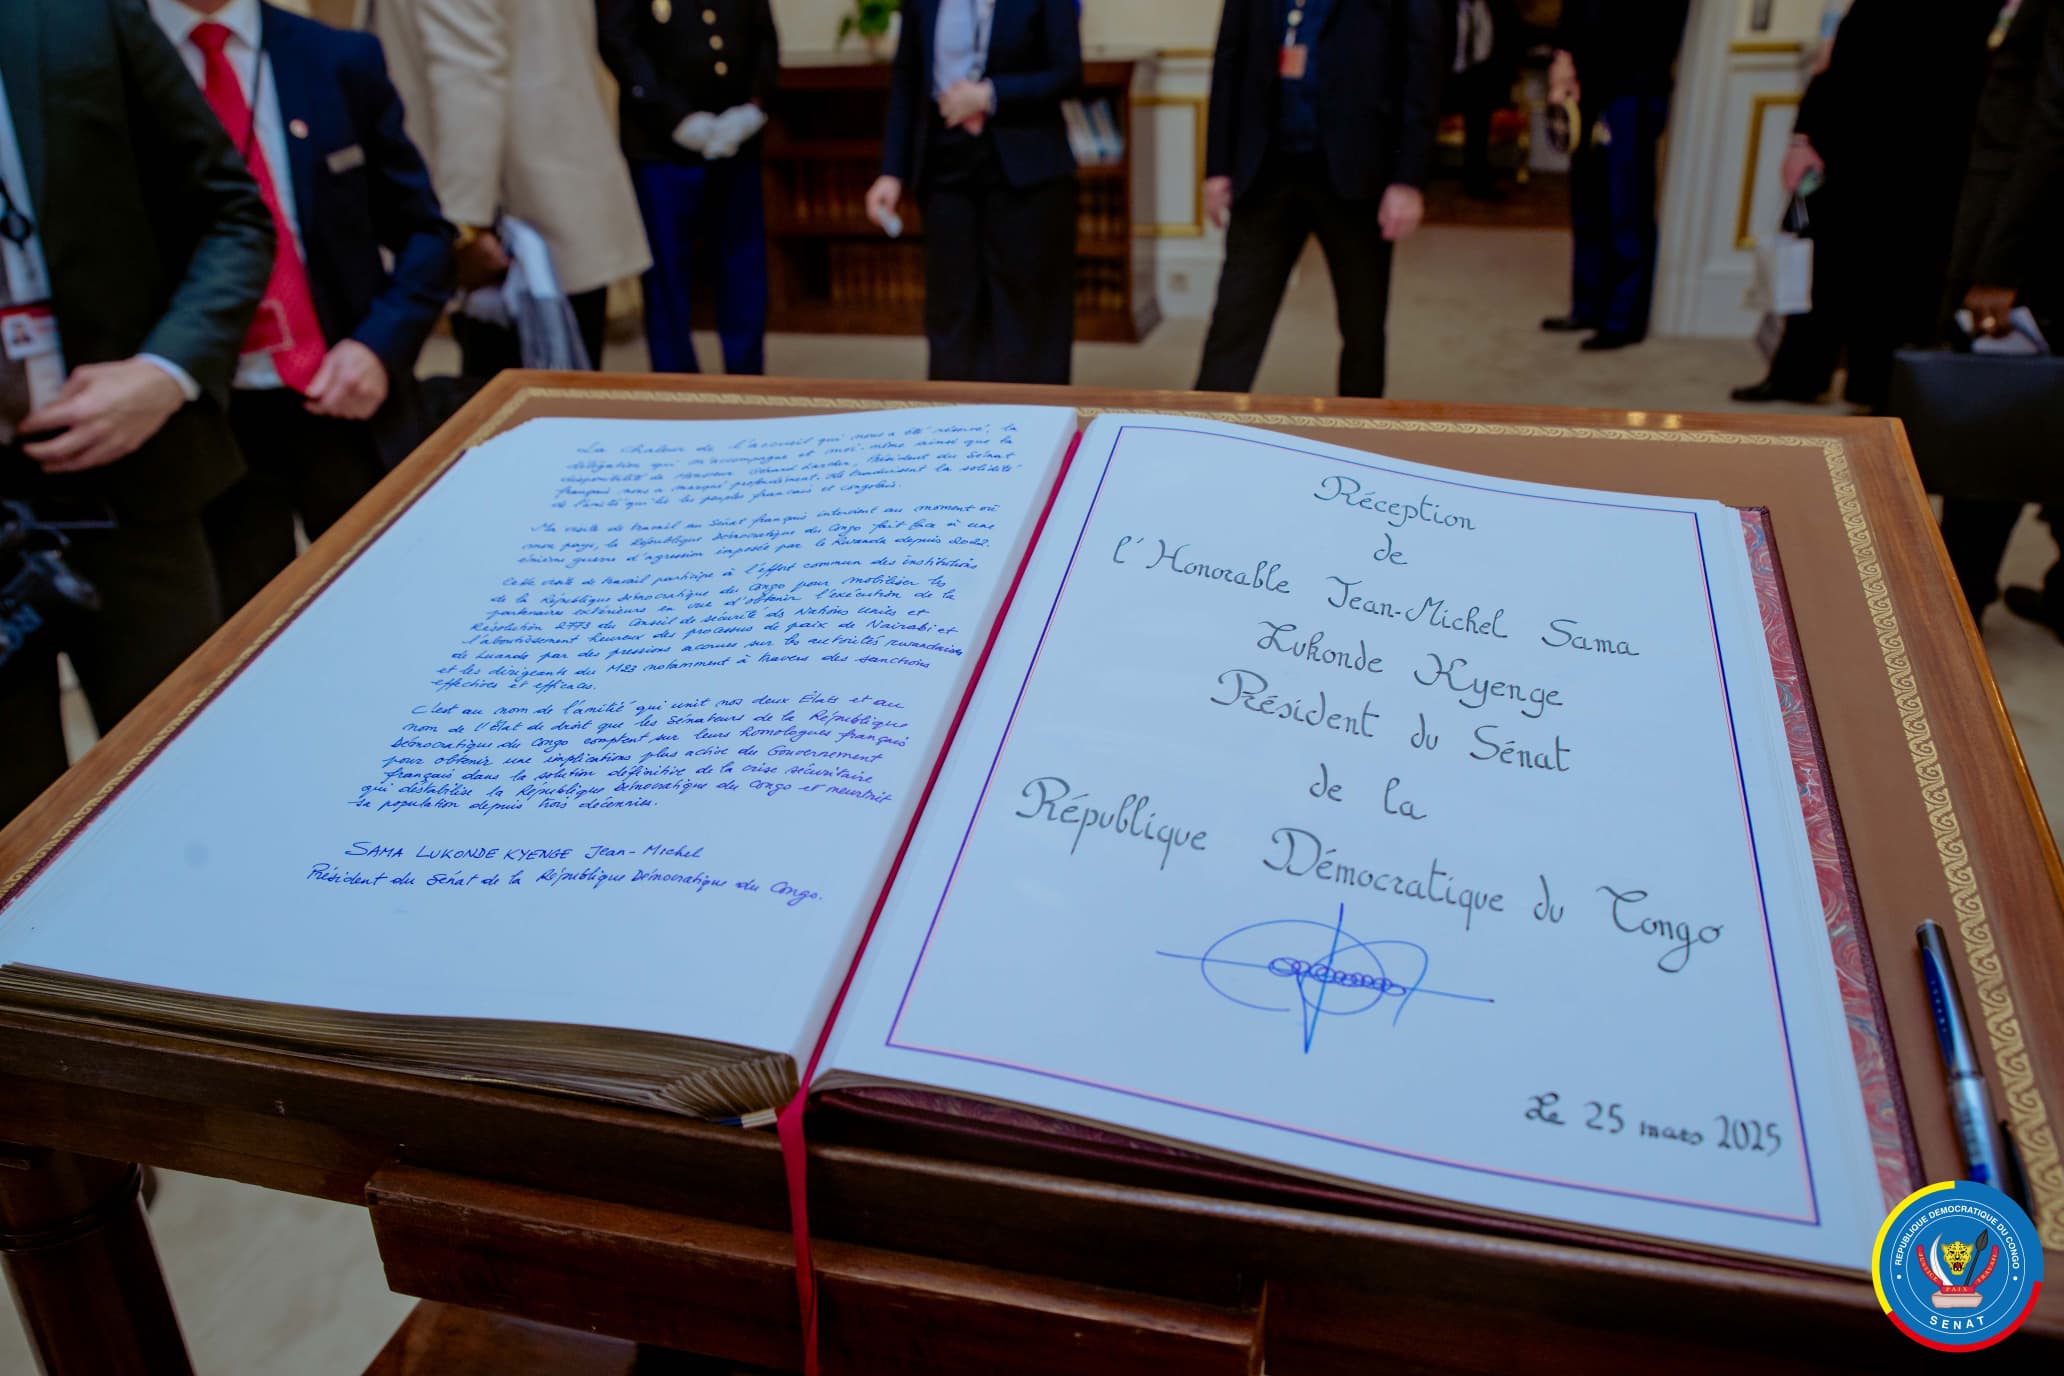 La chaleur de l'accueil qui nous a été réservé, la
délégation qui m'accompagne et moi-même ainsi que la
disponibilité de Monsieur Gérard Larcher, Président du Sénat
français nous a marqué profondément. Ils traduisent la solidité
de l'amitié qui lie les peuples francais et congolais.
Ma visite de travail au Sénat français intervient au moment où
mon pays, la République Démocratique du Congo fait face à une
énième guerre d'agression imposée par le Rwanda depuis 2022.
Cette visite de travail participe à l'effort commun des institutions
de la République Démocratique du Congo pour mobiliser les
partenaires extérieurs en vue d'obtenir l'exécution de la
Résolution 2773 du Conseil de sécurité des Nations Unies et
l'aboutissement heureux des processus de paix de Nairobi et
de Luanda par des pressions accrues sur les autorités rwandaises
et les dirigeants du M23 notamment à travers des sanctions
effectives et efficaces.
C'est au nom de l'amitié qui unit nos deux États et au
nom de l'État de droit que les Sénateurs de la République
Démocratique du Congo comptent sur leurs homologues français
pour obtenir une implication plus active du Gouvernement
français dans la solution définitive de la crise sécuritaire
qui déstabilise la République Démocratique du Congo et meurtrit
sa population depuis trois décennies.
SAMA LUKONDE KYENGE Jean-Michel
Président du Sénat de la République Démocratique du Congo.
Réception
de
l'Honorable Jean-Michel Sama
Lukonde Kyenge
Président du Sénat
de la
République Démocratique du Congo
Le 25 mars 2025
REPUBLIQUE DEMOCRATIQUE DU CONGO
JUSTICE PAIX TRAVAIL
SENAT